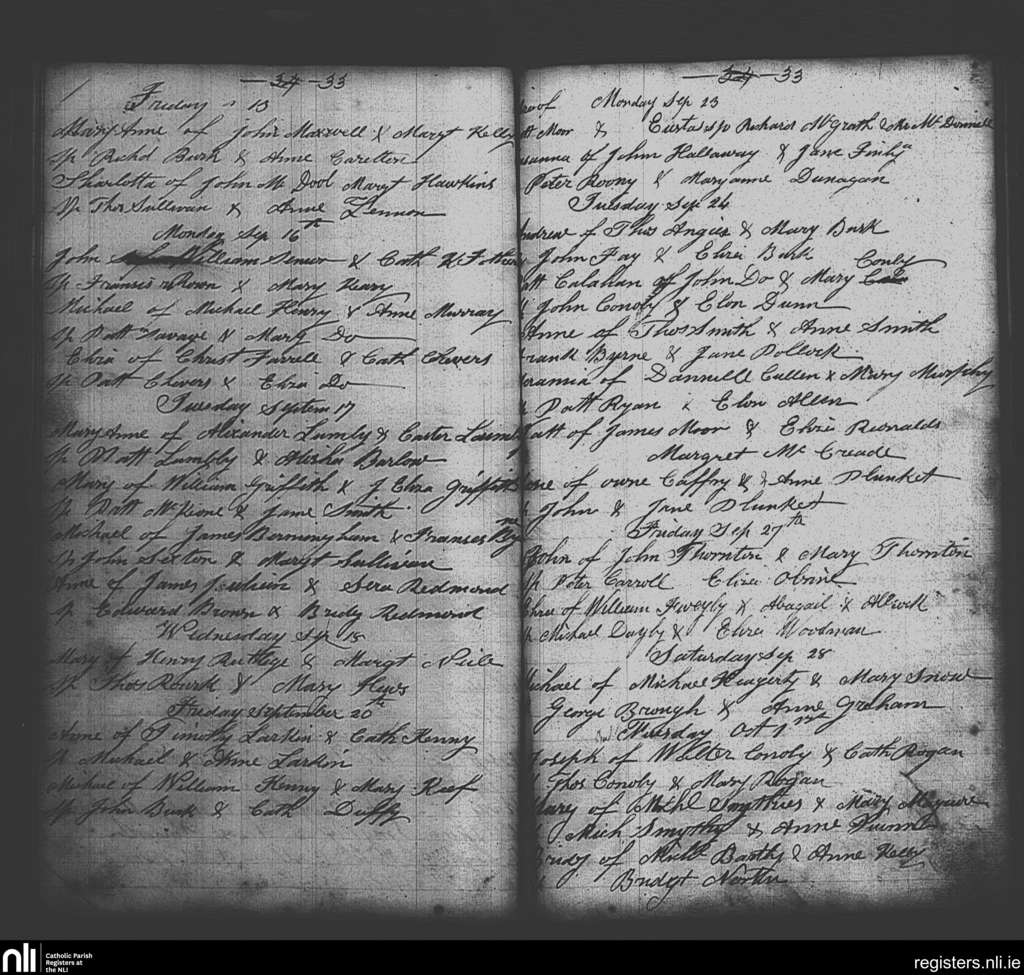 34 - 33
Friday 13
Mary Anne of John Maxwell & Margt Kelly
Sp Richd Burk & Anne Carelten
Sharlotta of John Mc Dool Margt Hawkins
Sp Thos Sullivan & Anne Lennon
Monday Sep 16th
John William Senior & Cath
Sp Francis Brown & Mary Henry
Michael of Michael Henry & Anne Murray
Sp Patt Savage & Mary Do
Eliza of Christ Farrell & Cath Chevers
Sp Patt Chevers & Eliza Do
Tuesday Septem 17
Mary Anne of Alixander Lumly & Easter
Sp Matt & Alisha Barlow
Mary of William Griffith & Eliza Griffith
Sp Patt McKeone & Jane Smith
Michael of James Bermongham & Frances
Sp John Sexton & Margt Sullivan
Anne of James & Sera Redmond
Sp Edward Brown & Bridy Redmond
Wednesday Sep 18
Mary of Henry Rutlige & Margt
Sp Thos Rourk & Mary
Friday September 20th
Anne of Timothy Larkin & Cath Kenny
Sp Michael & Anne Larkin
Michael of William Kenny & Mary Keef
Sp John Burk & Cath Duffy
34 - 33
Monday Sep 23
Moor & Eustas sp Richard McGrath & Mc Donnell
of John Hallaway & Jane
Peter Roony & Maryanne Dunagan
Tuesday Sep 24
Andrew of Thos Angier & Mary Burk
John Fay & Eliza Burk
Patt Calahan of John Do & Mary Conly
John Conoly & Elon Dunn
Anne of Thos Smith & Anne Smith
Frank Byrne & Jane Pollock
of Dannille Cullen & Mary Murphy
Patt Ryan & Elon Allen
Patt of James Moor & Eliza Reonalds
Margret Mc Creade
of owne Caffry & Anne Plunket
John & Jane Plunket
Friday Sep 27th
John of John Thornton & Mary Thornton
Sp Peter Carroll Eliza Obrine
of William & Abagail
Sp Michael & Eliza Woodman
Saturday Sep 28
Michael of Michael Heagerty & Mary Snow
George Brough & Anne Graham
Tuesday Oct 1st
Joseph of Walter Conoly & Cath Rogan
Thos Conoly & Mary Rogan
Mary of Michl Smythies & Mary Maguire
Mich Smythy & Anne Quinn
Bridy of & Anne Kelly
Bridgt
nli
Catholic Parish
Registers at
the NLI
registers.nli.ie